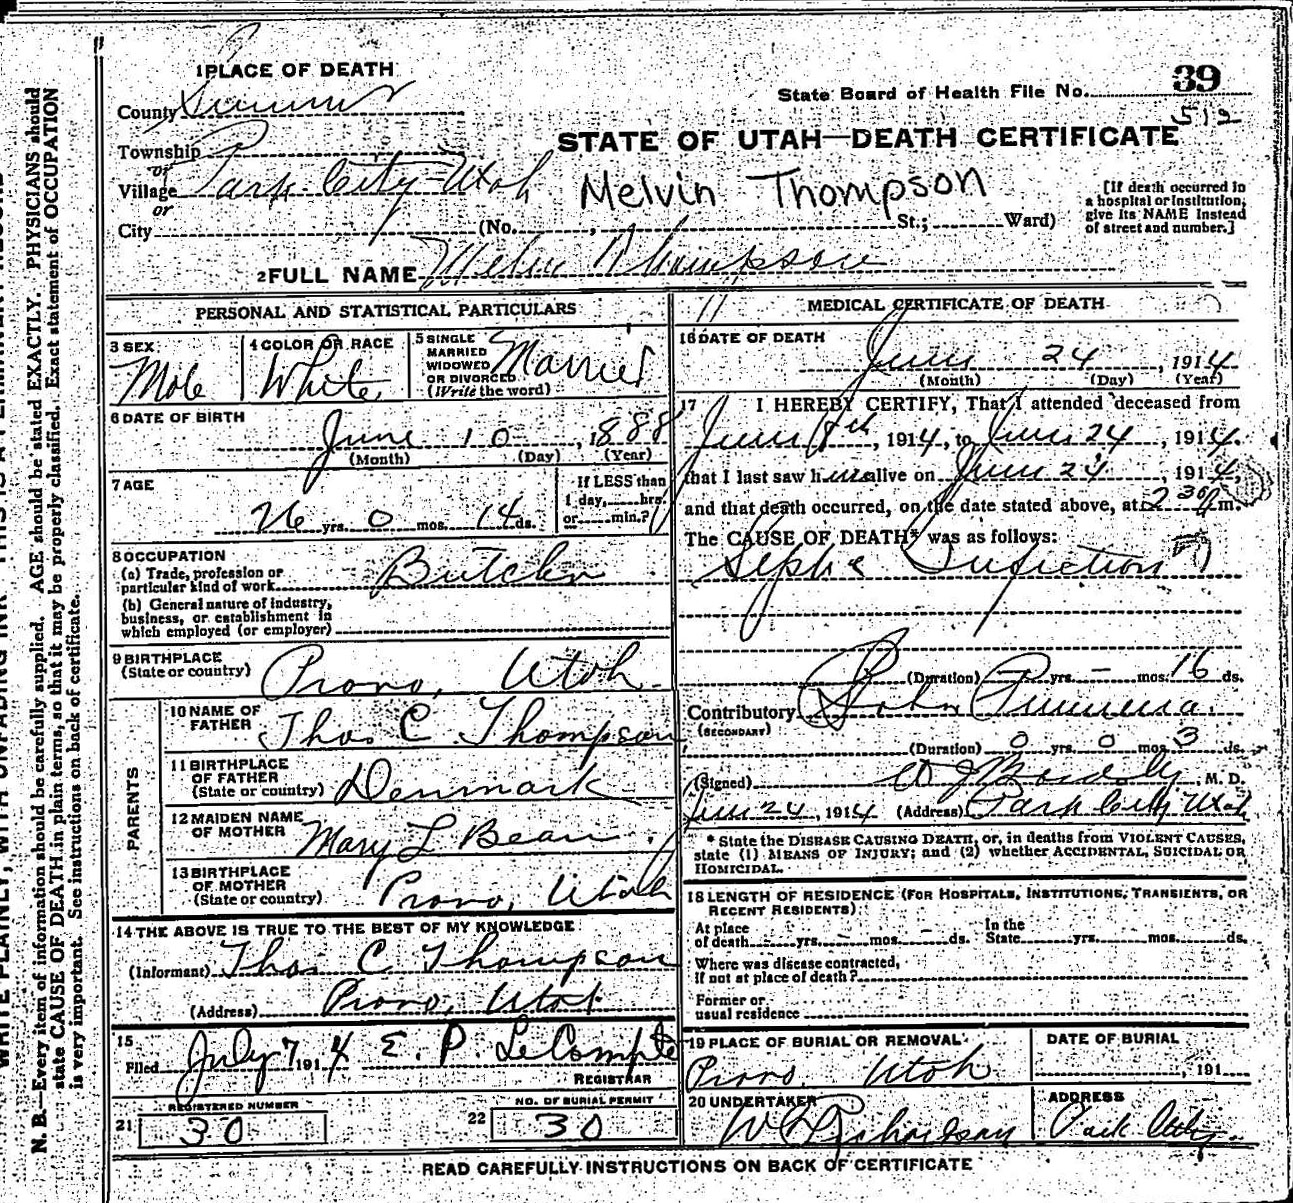 1 PLACE OF DEATH
County Summit
Township
or
Village Park City Utah
or
City (No. , St.; Ward)
State Board of Health File No. 39
512
STATE OF UTAH—DEATH CERTIFICATE
Melvin Thompson
[If death occurred in
a hospital or institution,
give its NAME instead
of street and number.]
2 FULL NAME Melvin Thompson
PERSONAL AND STATISTICAL PARTICULARS
3 SEX
Male
4 COLOR OR RACE
White
5 SINGLE
MARRIED
WIDOWED
OR DIVORCED
(Write the word)
Married
6 DATE OF BIRTH
June 10, 1888
(Month) (Day) (Year)
7 AGE
26 yrs. 0 mos. 14 ds.
If LESS than
1 day, hrs.
or min.?
8 OCCUPATION
(a) Trade, profession or
particular kind of work Butcher
(b) General nature of industry,
business, or establishment in
which employed (or employer)
9 BIRTHPLACE
(State or country)
Provo, Utah
PARENTS
10 NAME OF
FATHER
Thos C. Thompson
11 BIRTHPLACE
OF FATHER
(State or country) Denmark
12 MAIDEN NAME
OF MOTHER Mary L Bean
13 BIRTHPLACE
OF MOTHER
(State or country) Provo, Utah
14 THE ABOVE IS TRUE TO THE BEST OF MY KNOWLEDGE
(Informant) Thos C Thompson
(Address) Provo, Utah
15
Filed July 7 1914 E. P. LeCompte
REGISTRAR
REGISTERED NUMBER
21 30
NO. OF BURIAL PERMIT
22 30
MEDICAL CERTIFICATE OF DEATH
16 DATE OF DEATH
June 24, 1914
(Month) (Day) (Year)
17 I HEREBY CERTIFY, That I attended deceased from
June 8th, 1914, to June 24, 1914.
that I last saw him alive on June 24, 1914,
and that death occurred, on the date stated above, at 2 30 m.
The CAUSE OF DEATH* was as follows:
Septic Infection
(Duration) yrs. — mos. 16 ds.
Contributory
(SECONDARY)
(Duration) 0 yrs. 0 mos. 3 ds.
(Signed) M. D.
June 24, 1914 (Address) Park City Utah
* State the DISEASE CAUSING DEATH, or, in deaths from VIOLENT CAUSES,
state (1) MEANS OF INJURY; and (2) whether ACCIDENTAL, SUICIDAL OR
HOMICIDAL.
18 LENGTH OF RESIDENCE (FOR HOSPITALS, INSTITUTIONS, TRANSIENTS, OR
RECENT RESIDENTS)
At place
of death yrs. mos. ds.
In the
State yrs. mos. ds.
Where was disease contracted,
if not at place of death?
Former or
usual residence
19 PLACE OF BURIAL OR REMOVAL
Provo Utah
DATE OF BURIAL
, 191
20 UNDERTAKER
W Richardson
ADDRESS
Park City
READ CAREFULLY INSTRUCTIONS ON BACK OF CERTIFICATE
N. B.—Every item of information should be carefully supplied. AGE should be stated EXACTLY. PHYSICIANS should
state CAUSE OF DEATH in plain terms, so that it may be properly classified. Exact statement of OCCUPATION
is very important. See instructions on back of certificate.